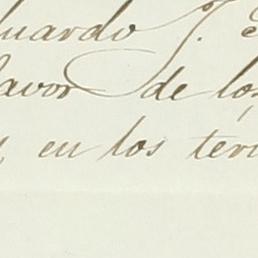 duardo J.
favor de los
en los tér